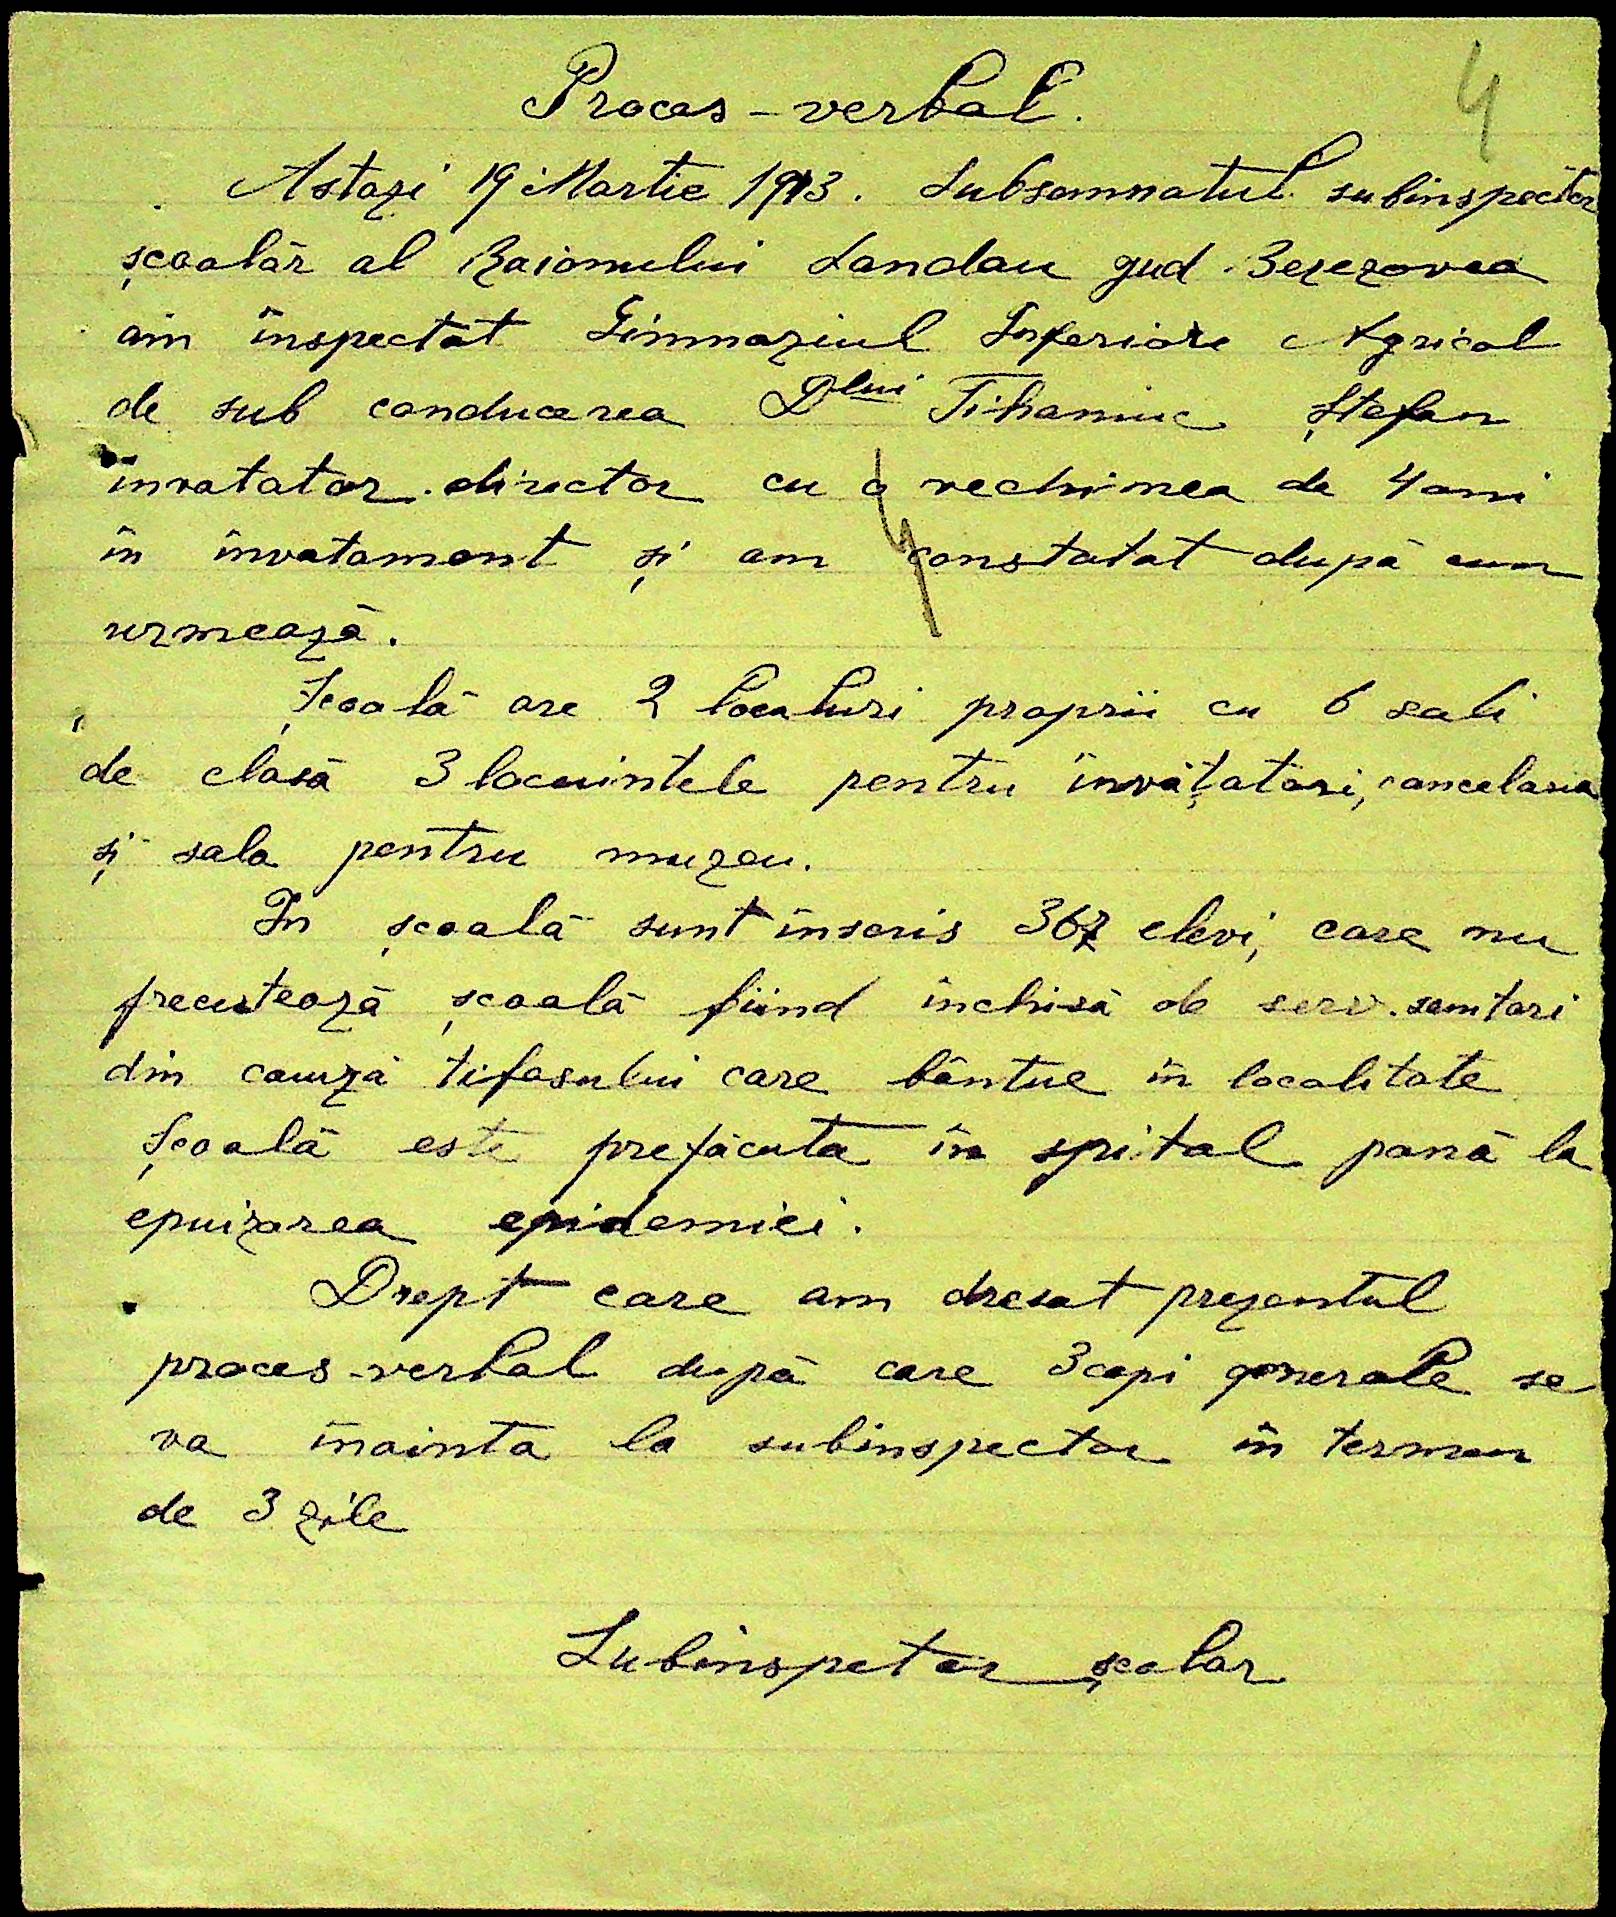 4
Proces-verbal.
Astazi 19 Martie 1913. Subsemnatul subinspector
școalăr al Raionului Landau jud. Berezovca
am inspectat Gimnaziul Inferior Agricol
de sub conducerea Dlui Tihaniuc Ștefan
invatator. director cu o vechimea de 4 ani
în învatament și am constatat după cum
urmează.
Școală are 2 localuri proprii cu 6 sali
de clasă 3 locuintele pentru învățatori, cancelaria
și sala pentru muzeu.
In școală sunt înscris 367 elevi, care nu
frecuteoză școală fiind închisă de serv. sanitari
din cauză tifosului care bântue în localitate
Școală este prefăcuta în spital pană la
epuizarea epidemiei.
Drept care am dresat prezentul
proces-verbal după care 3 copi generale se
va înainta la subinspector în termen
de 3 zile
Subinspetor școlar